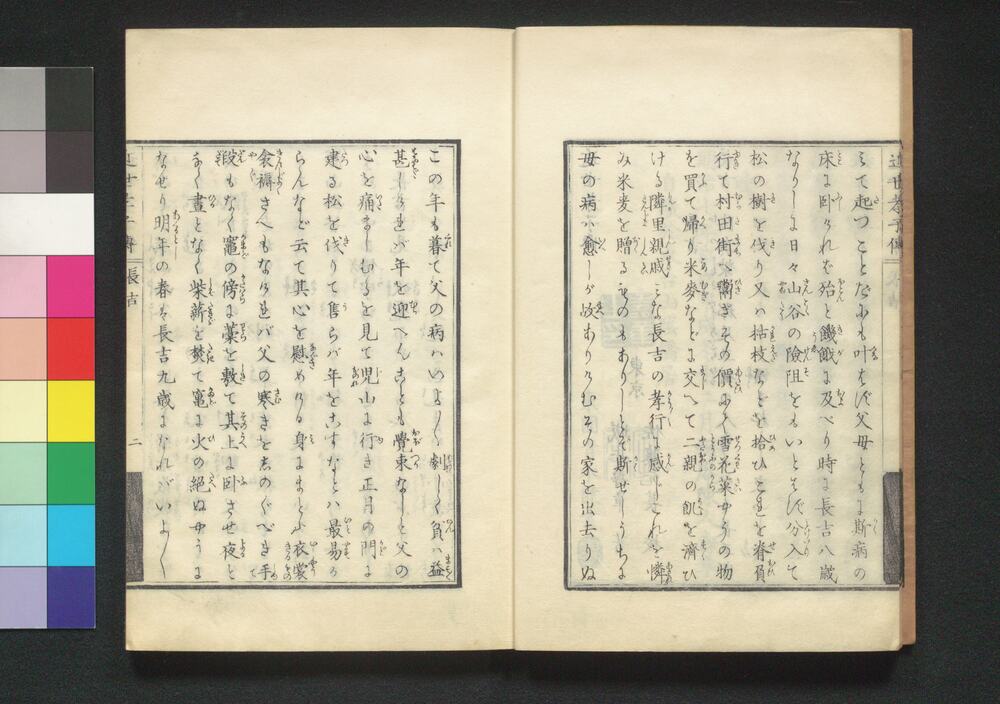 近世孝子傳
みて起つことだにも叶はず父母ともに斯病の
床に臥ければ殆と饑餓に及べり時に長吉八歳
なりしに日々山谷の險阻をもいとはず分入て
松の樹を伐り又ハ枯枝などを拾ひこれを脊負
行て村田街に鬻ぎその價にて雪花菜やうの物
を買て帰り米麥などに交へて二親の飢を濟ひ
ける隣里親戚みな長吉の孝行に感じこれを憐
み米麦を贈るものもありしとぞ斯せしうちに
母の病ハ愈しが故ありけむその家を出去りぬ
この年も暮て父の病ハいよ〱劇しく負ハ益
甚しけれバ年を迎へんことも覺束なしと父の
心を痛ましむるを見て児山に行き正月の門に
建る松を伐りて售らバ年をこすなとハ最易か
らんなど云て其心を慰めける身にまとふ衣裳
衾褥さへもなけれバ父の寒きを志のぐべき手
段もなく竈の傍に藁を敷て其上に臥させ夜と
なく晝となく柴薪を焚て竈に火の絶ぬやうに
なせり明年の春は長吉九歳になれバいよ〱
近世孝子傳 長吉 二
東京